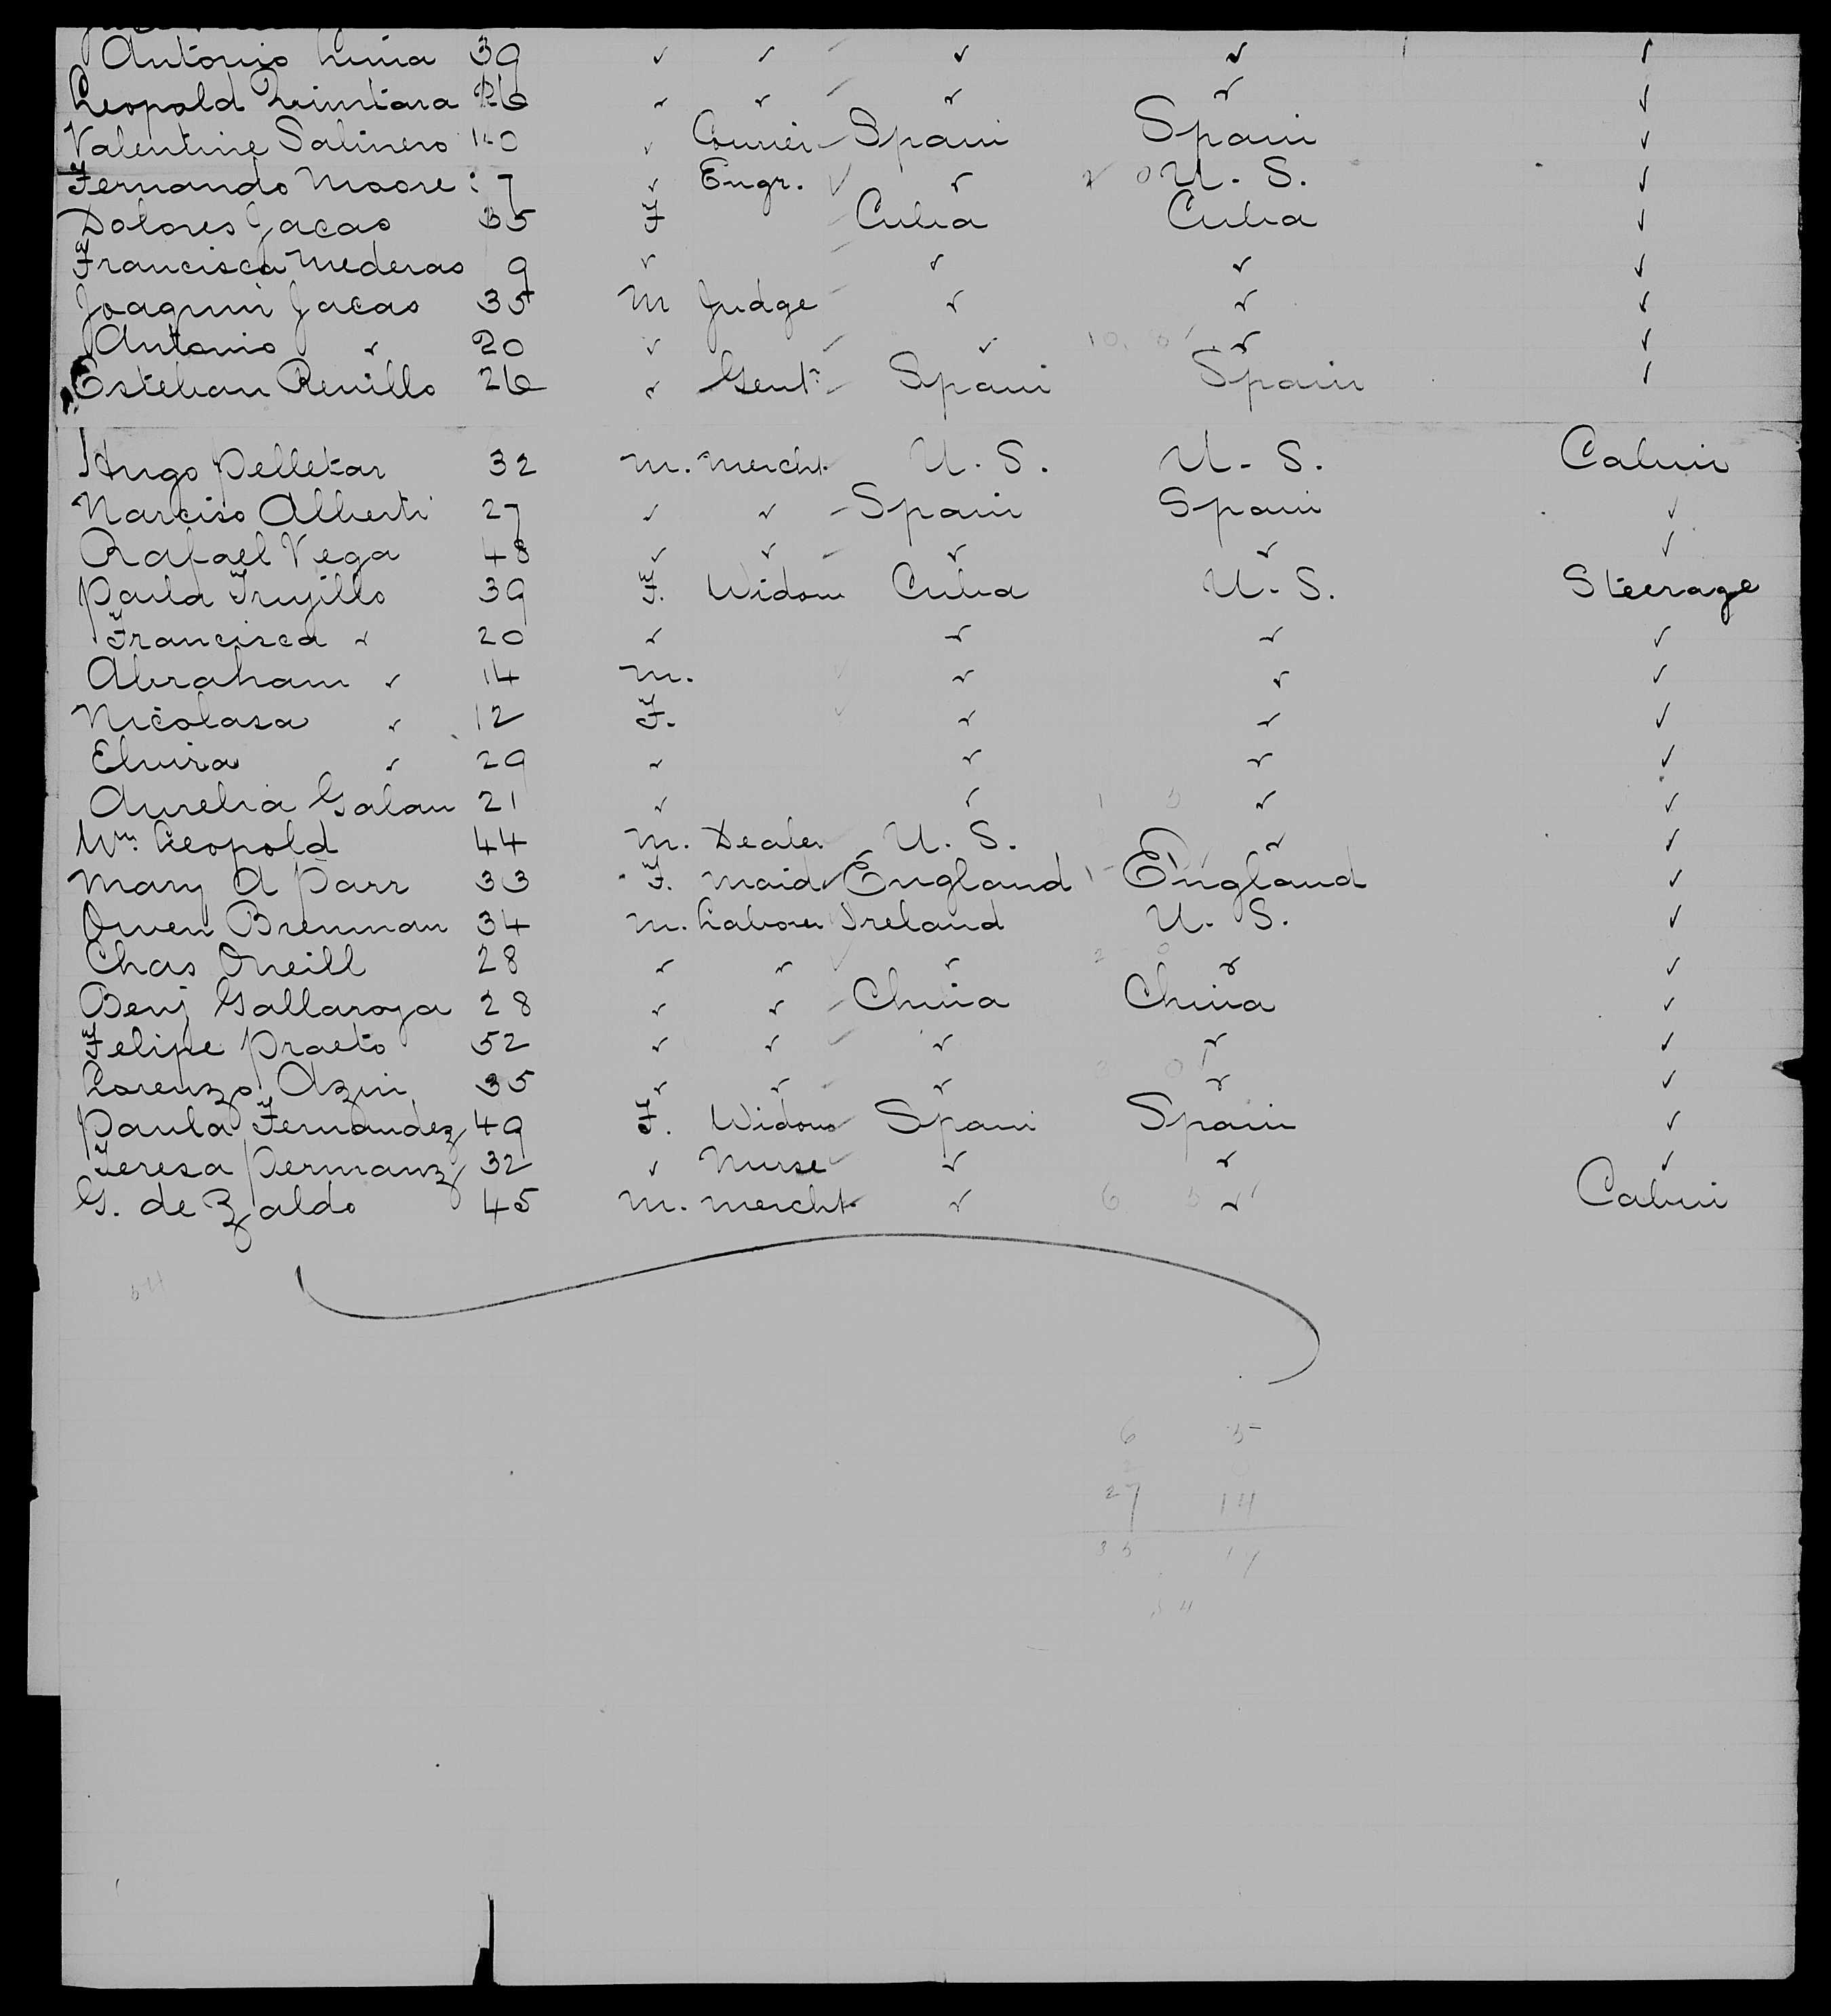 Antonio Luna 39 ✓ ✓ ✓ ✓ ✓
Leopold Quintana 26 ✓ ✓ ✓ ✓ ✓
Valentine Salinero 40 ✓ Courier Spain Spain ✓
Fernando Moore 7 ✓ Engr. ✓ U. S. ✓
Dolores Jacas 35 F Cuba Cuba ✓
Francisca Mederas 9 ✓ ✓ ✓ ✓
Joaquin Jacas 35 M Judge ✓ ✓ ✓
Antonio ✓ 20 ✓ ✓ ✓ ✓
Esteban Revillo 26 ✓ Gent. Spain Spain ✓
Hugo Pelletar 32 M. Mercht. U. S. U. S. Cabin
Narciso Alberti 27 ✓ ✓ Spain Spain ✓
Rafael Vega 48 ✓ ✓ ✓ ✓ ✓
Paula Trujillo 39 F. Widow Cuba U. S. Steerage
Francisca ✓ 20 ✓ ✓ ✓ ✓
Abraham ✓ 14 M. ✓ ✓ ✓
Nicolasa ✓ 12 F. ✓ ✓ ✓
Elvira ✓ 29 ✓ ✓ ✓ ✓
Aurelia Galan 21 ✓ ✓ ✓ ✓
Wm. Leopold 44 M. Dealer U. S. ✓ ✓
Mary A Parr 33 F. Maid England England ✓
Owen Brennan 34 M. Laborer Ireland U. S. ✓
Chas Oneill 28 ✓ ✓ ✓ ✓ ✓
Benj Gallaroya 28 ✓ ✓ China China ✓
Felipe Praeto 52 ✓ ✓ ✓ ✓ ✓
Lorenzo Azin 35 ✓ ✓ ✓ ✓ ✓
Paula Fernandez 49 F. Widow Spain Spain ✓
Teresa Permanz 32 ✓ Nurse ✓ ✓ ✓
G. de Zaldo 45 M. Mercht ✓ ✓ Cabin
54
6 3
2 0
27 14
35 17
54